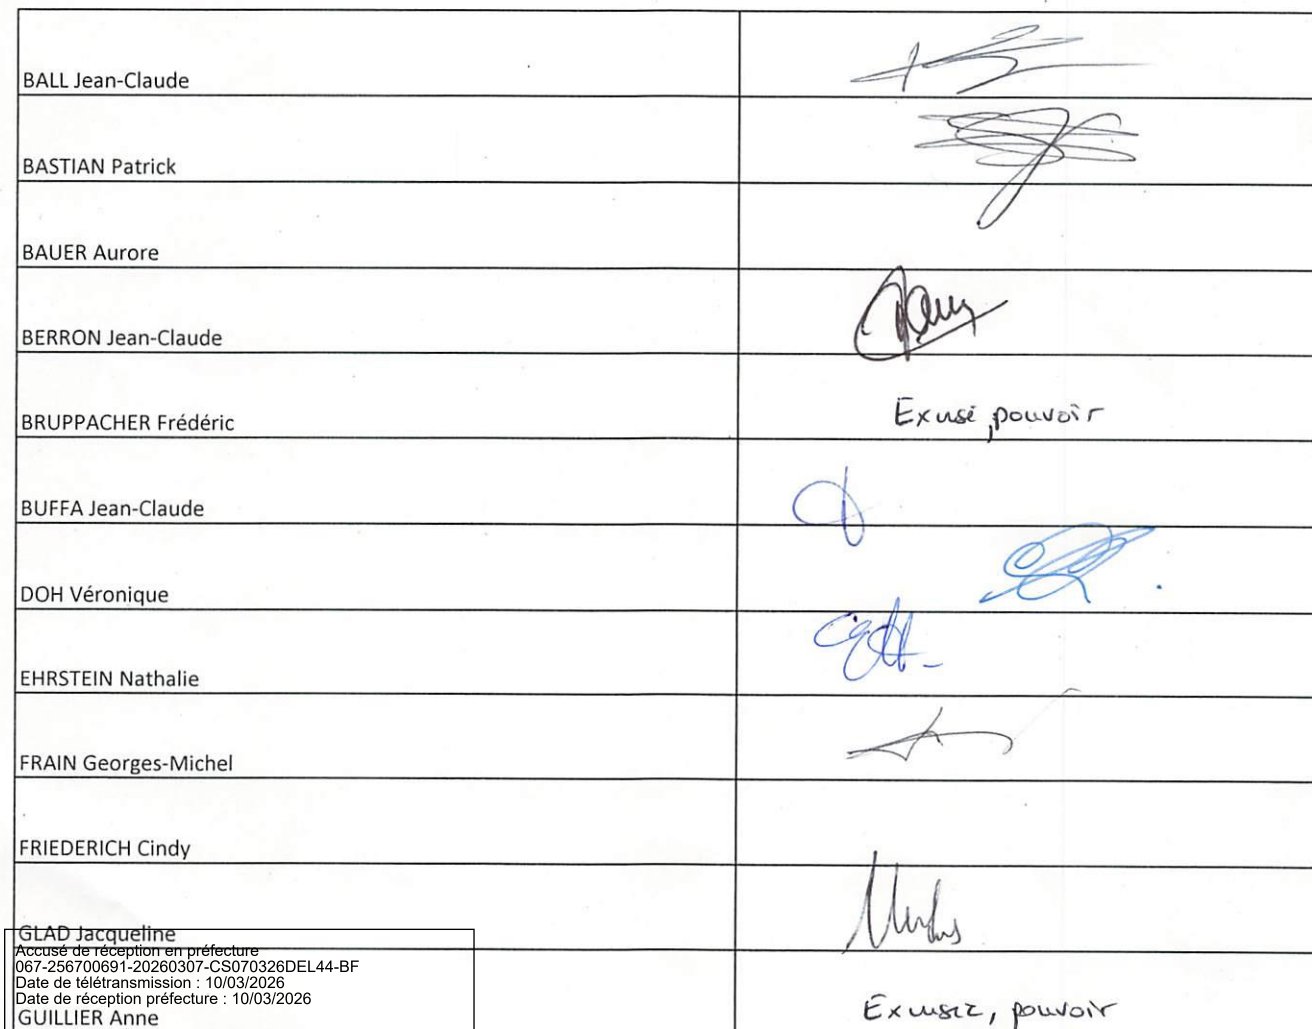 BALL Jean-Claude
BASTIAN Patrick
BAUER Aurore
BERRON Jean-Claude
BRUPPACHER Frédéric Exusé, pouvoir
BUFFA Jean-Claude
DOH Véronique
EHRSTEIN Nathalie
FRAIN Georges-Michel
FRIEDERICH Cindy
GLAD Jacqueline
Accusé de réception en préfecture
067-256700691-20260307-CS070326DEL44-BF
Date de télétransmission : 10/03/2026
Date de réception préfecture : 10/03/2026
GUILLIER Anne Exusée, pouvoir